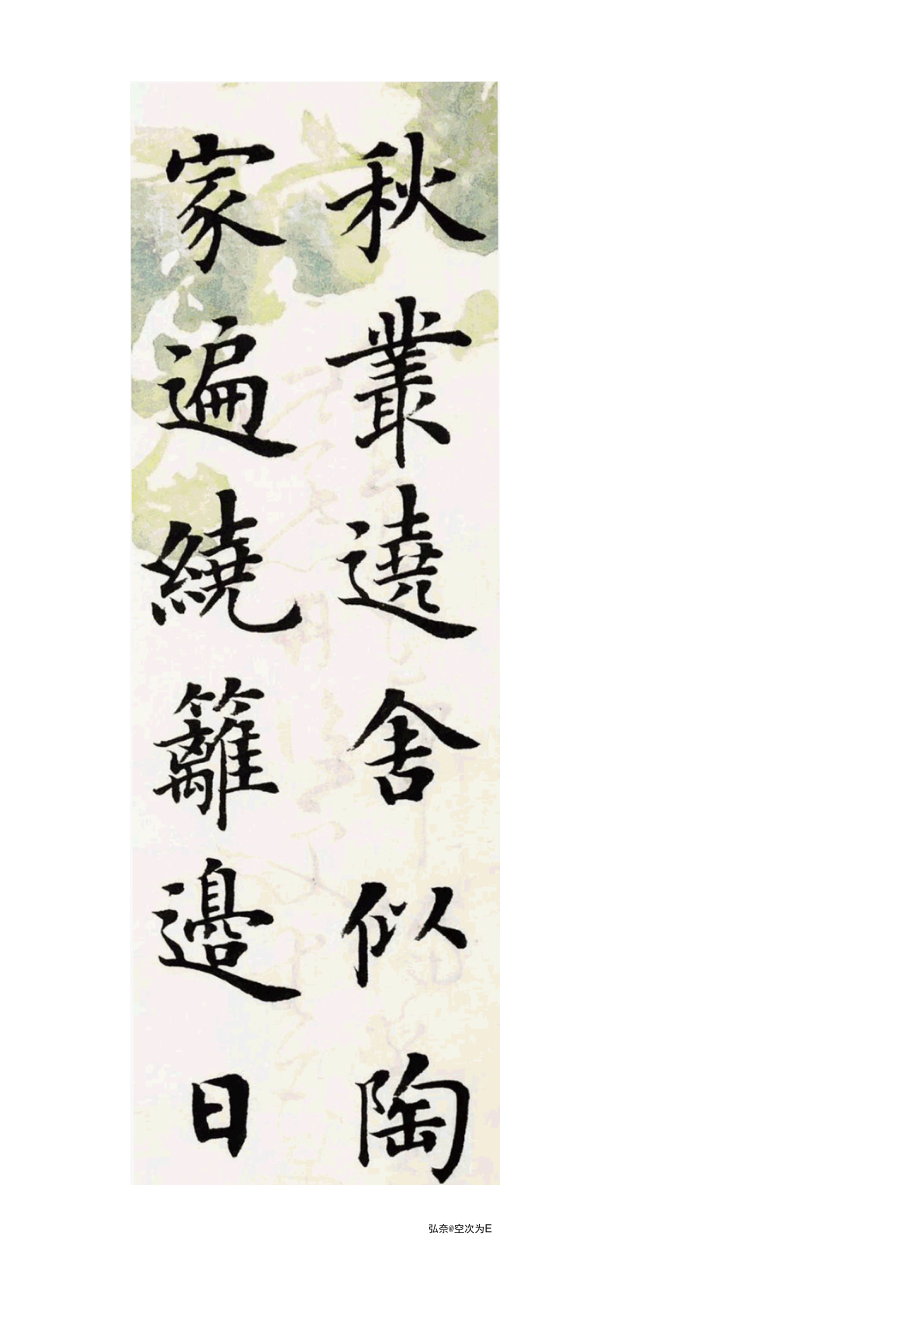 秋叢遶舍似陶
家遍繞籬邊日
弘奈@空次为E